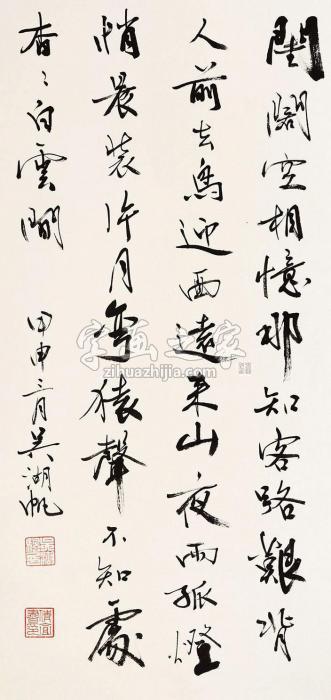 闊空相憶那知客路艱背
人前去鳥迎面遠來山夜雨孤燈
悄晨裝片月彎猿聲不知處
杳々白雲間
甲申三月吳湖帆
字画之家
zihuazhijia.com